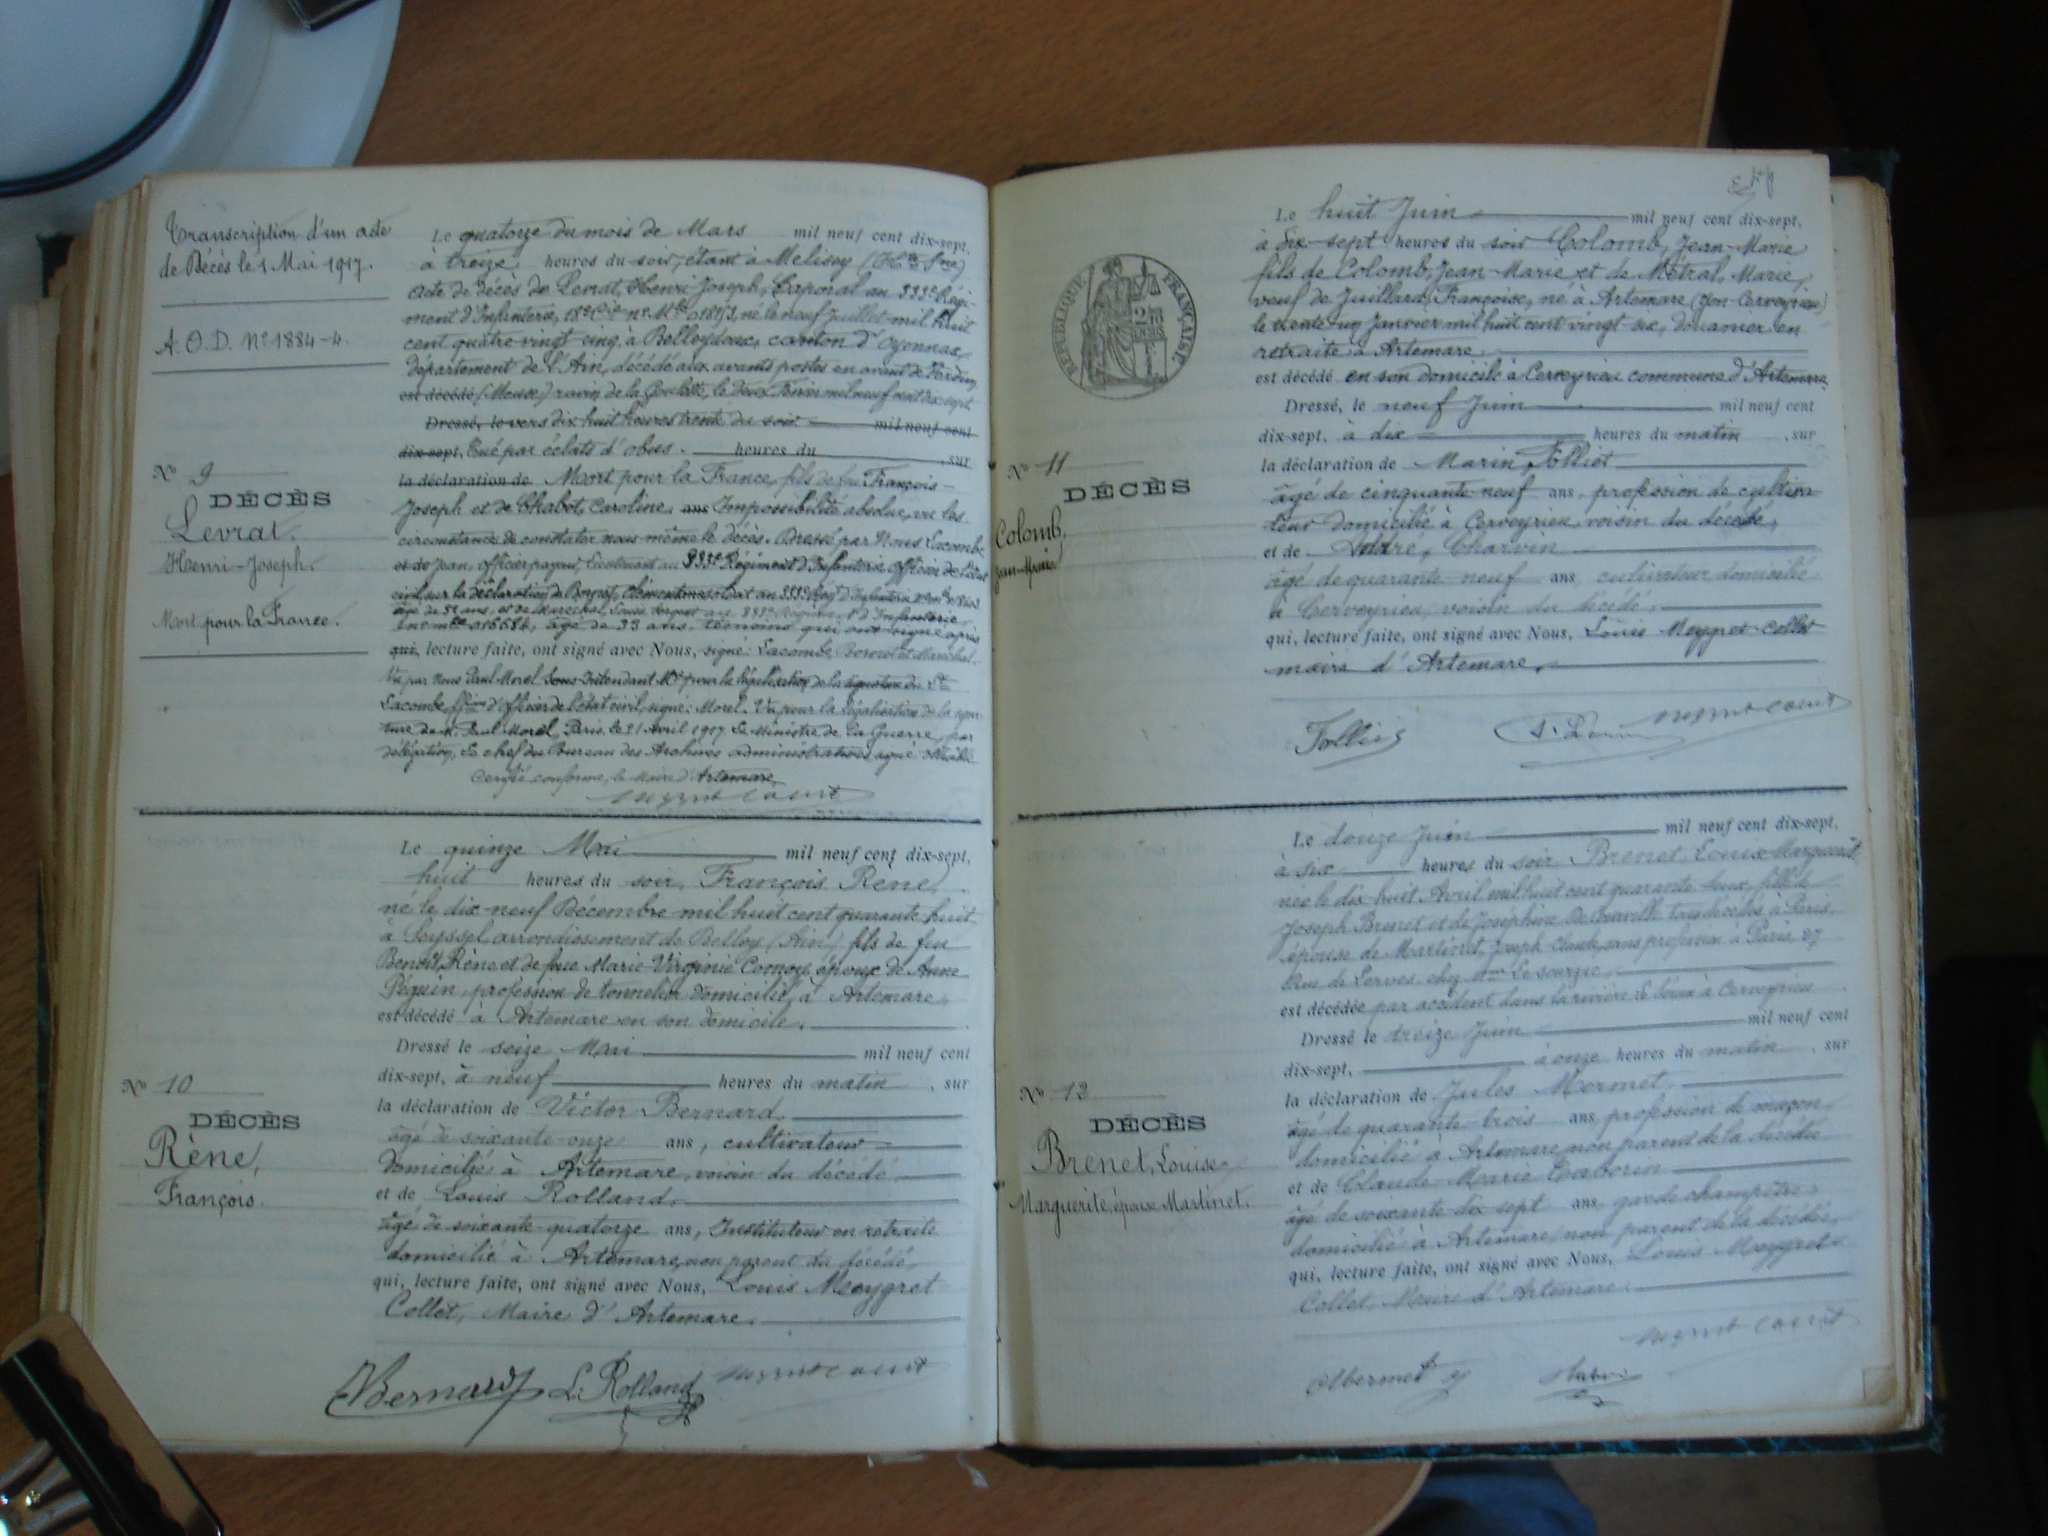 Transcription d'un acte
de Décès le 1 Mai 1917.
A.O.D. No 1884-4.
No 9
DÉCÈS
Levrat,
Henri-Joseph.
Mort pour la France.
Le quatorze du mois de Mars mil neuf cent dix-sept,
à treize heures du soir, étant à Melisey (Hte Sne)
acte de décès de Levrat, Henri Joseph, Caporal au 333e Régi-
ment d'Infanterie, né le neuf Juillet mil huit
cent quatre vingt cinq, à Belleydoux, canton d'Oyonnax,
département de l'Ain, décédé aux avants postes en avant de Verdun,
est décédé (Meuse) ravin de la Goulette, le deux mil neuf cent dix-sept
Dressé, le vers dix huit heures trente du soir mil neuf cent
dix-sept, Tué par éclats d'obus. heures du , sur
la déclaration de Mort pour la France, fils de feu François-
Joseph et de Chabot, Caroline. ans Impossibilité absolue, vu les
circonstances de constater nous même le décès. Dressé par Nous Lacombe
et de Jean, officier payeur, Lieutenant au 333e Régiment d'Infanterie officier de l'état
civil, sur la déclaration de soldat au 333e Régt d'Infanterie
âgé de ans, et de Maréchal, Louis Sergent au 333e Régiment d'Infanterie,
âgé de 33 ans. témoins qui ont signé après
qui, lecture faite, ont signé avec Nous, signé: Lacombe, et Maréchal.
Vu par Nous Paul Morel Sous-Intendant Mre pour la légalisation de la signature du
Lacombe, d'officier de l'état civil, signé: Morel. Vu pour la légalisation de la signa-
ture de M. Paul Morel, Paris, le 21 Avril 1917 Le Ministre de la Guerre, par
délégation, Le chef du Bureau des Archives administratives signé
Certifié conforme, le Maire d'Artemare,
No 10
DÉCÈS
Rène,
François.
Le quinze Mai mil neuf cent dix-sept,
huit heures du soir, François Rène,
né le dix-neuf Décembre mil huit cent quarante huit
à Seyssel arrondissement de Belley (Ain) fils de feu
Benoît Rène et de feue Marie Virginie époux de Anne
Péguin, profession de tonnelier domicilié à Artemare,
est décédé à Artemare en son domicile.
Dressé le seize Mai mil neuf cent
dix-sept, à neuf heures du matin , sur
la déclaration de Victor Bernard.
âgé de soixante-onze ans, cultivateur
domicilié à Artemare, voisin du décédé
et de Louis Rolland,
âgé de soixante-quatorze ans, Instituteur en retraite
domicilié à Artemare, non parent du décédé,
qui, lecture faite, ont signé avec Nous, Louis Meygret
Collet, Maire d'Artemare.
Bernard L. Rolland
RÉPUBLIQUE FRANÇAISE
No 11
DÉCÈS
Colomb,
Jean-Marie
Le huit Juin mil neuf cent dix-sept,
à dix-sept heures du soir Colomb, Jean-Marie
fils de Colomb, Jean-Marie et de Métral, Marie,
veuf de Juillard, Françoise, né à Artemare (Yon-Cerveyrieu)
le trente-un Janvier mil huit cent vingt six, douanier en
retraite à Artemare.
est décédé en son domicile à Cerveyrieu commune d'Artemare,
Dressé, le neuf Juin mil neuf cent
dix-sept, à dix heures du matin , sur
la déclaration de Marin Folliet
âgé de cinquante-neuf ans, profession de cultiva
teur domicilié à Cerveyrieu, voisin du décédé,
et de André, Charvin
âgé de quarante neuf ans cultivateur domicilié
à Cerveyrieu, voisin du décédé,
qui, lecture faite, ont signé avec Nous, Louis Meygret-Collet
maire d'Artemare.
Folliet
No 12
DÉCÈS
Brenet, Louise
Marguerite, épouse Martinet.
Le douze Juin mil neuf cent dix-sept,
à six heures du soir Brenet Louise Marguerite
née le dix huit Avril mil huit cent quarante deux, fille de
Joseph Brenet et de Joséphine décédés à Paris,
épouse de Martinet, Joseph Claude, sans profession à Paris, 27
Rue de chez
est décédée par accident dans la rivière à Cerveyrieu
Dressé le treize Juin mil neuf cent
dix-sept, à onze heures du matin , sur
la déclaration de Jules Mermet,
âgé de quarante-trois ans, profession de maçon,
domicilié à Artemare, non parent de la décédée
et de Claude Marie
âgé de soixante-dix sept ans, garde champêtre,
domicilié à Artemare, non parent de la décédée,
qui, lecture faite, ont signé avec Nous, Louis Meygret
Collet, Maire d'Artemare.